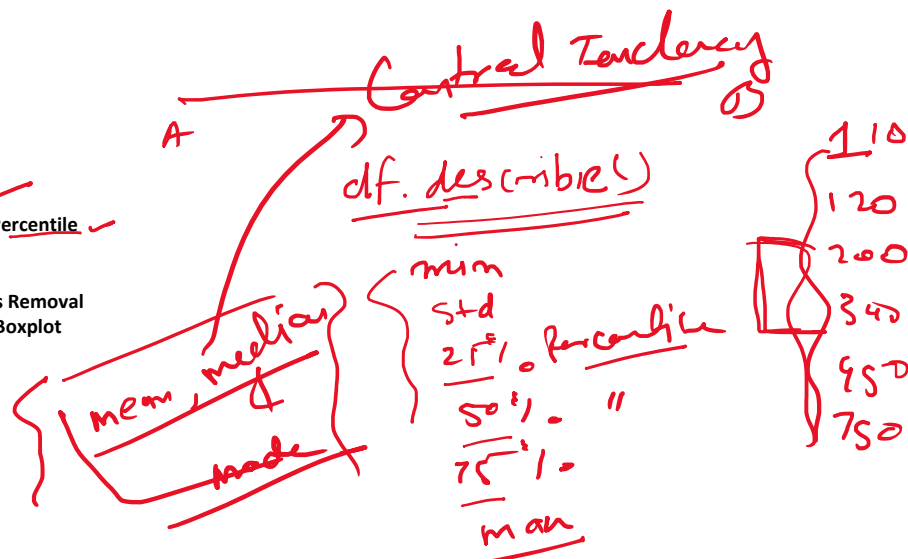 Central Tendency
A
B
df. describe()
ercentile
s Removal
Boxplot
mean, median
&
mode
min
std
25% Percentile
50%. "
75%.
max
110
120
200
340
450
750